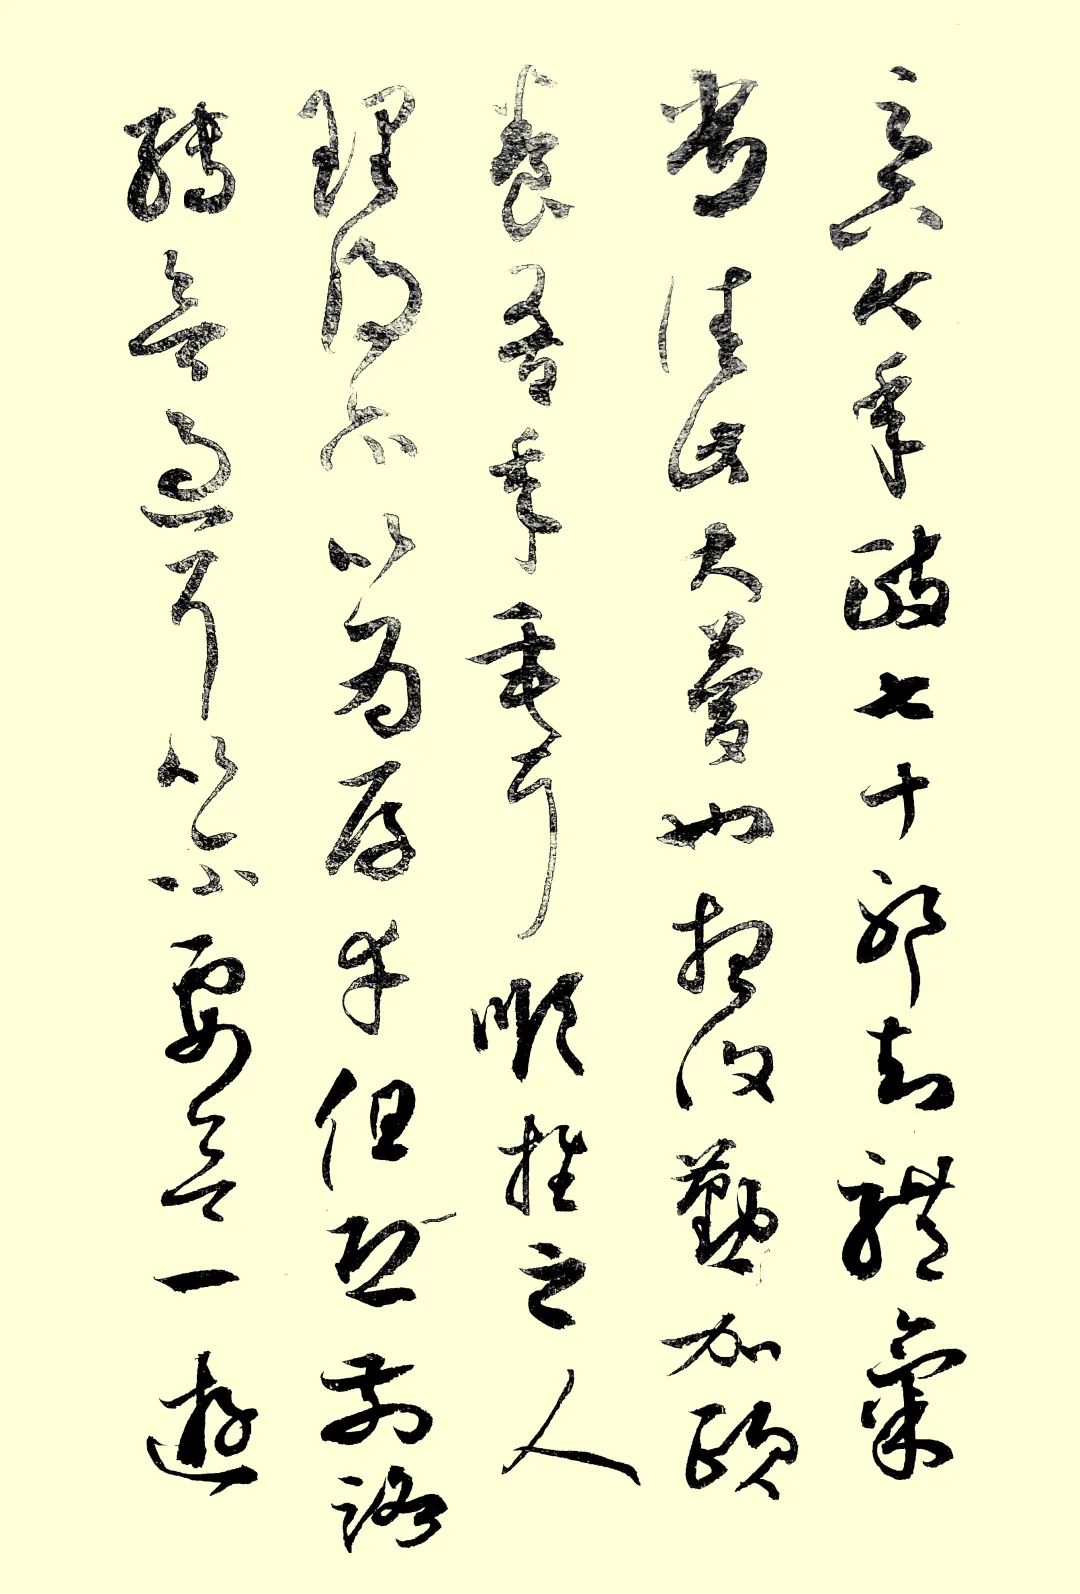 足下今年政七十耶知體氣
常佳此大慶也想復勤加頤
養吾年垂耳順推之人
理得爾以為厚幸但恐前路
轉欲逼耳以爾要欲一遊